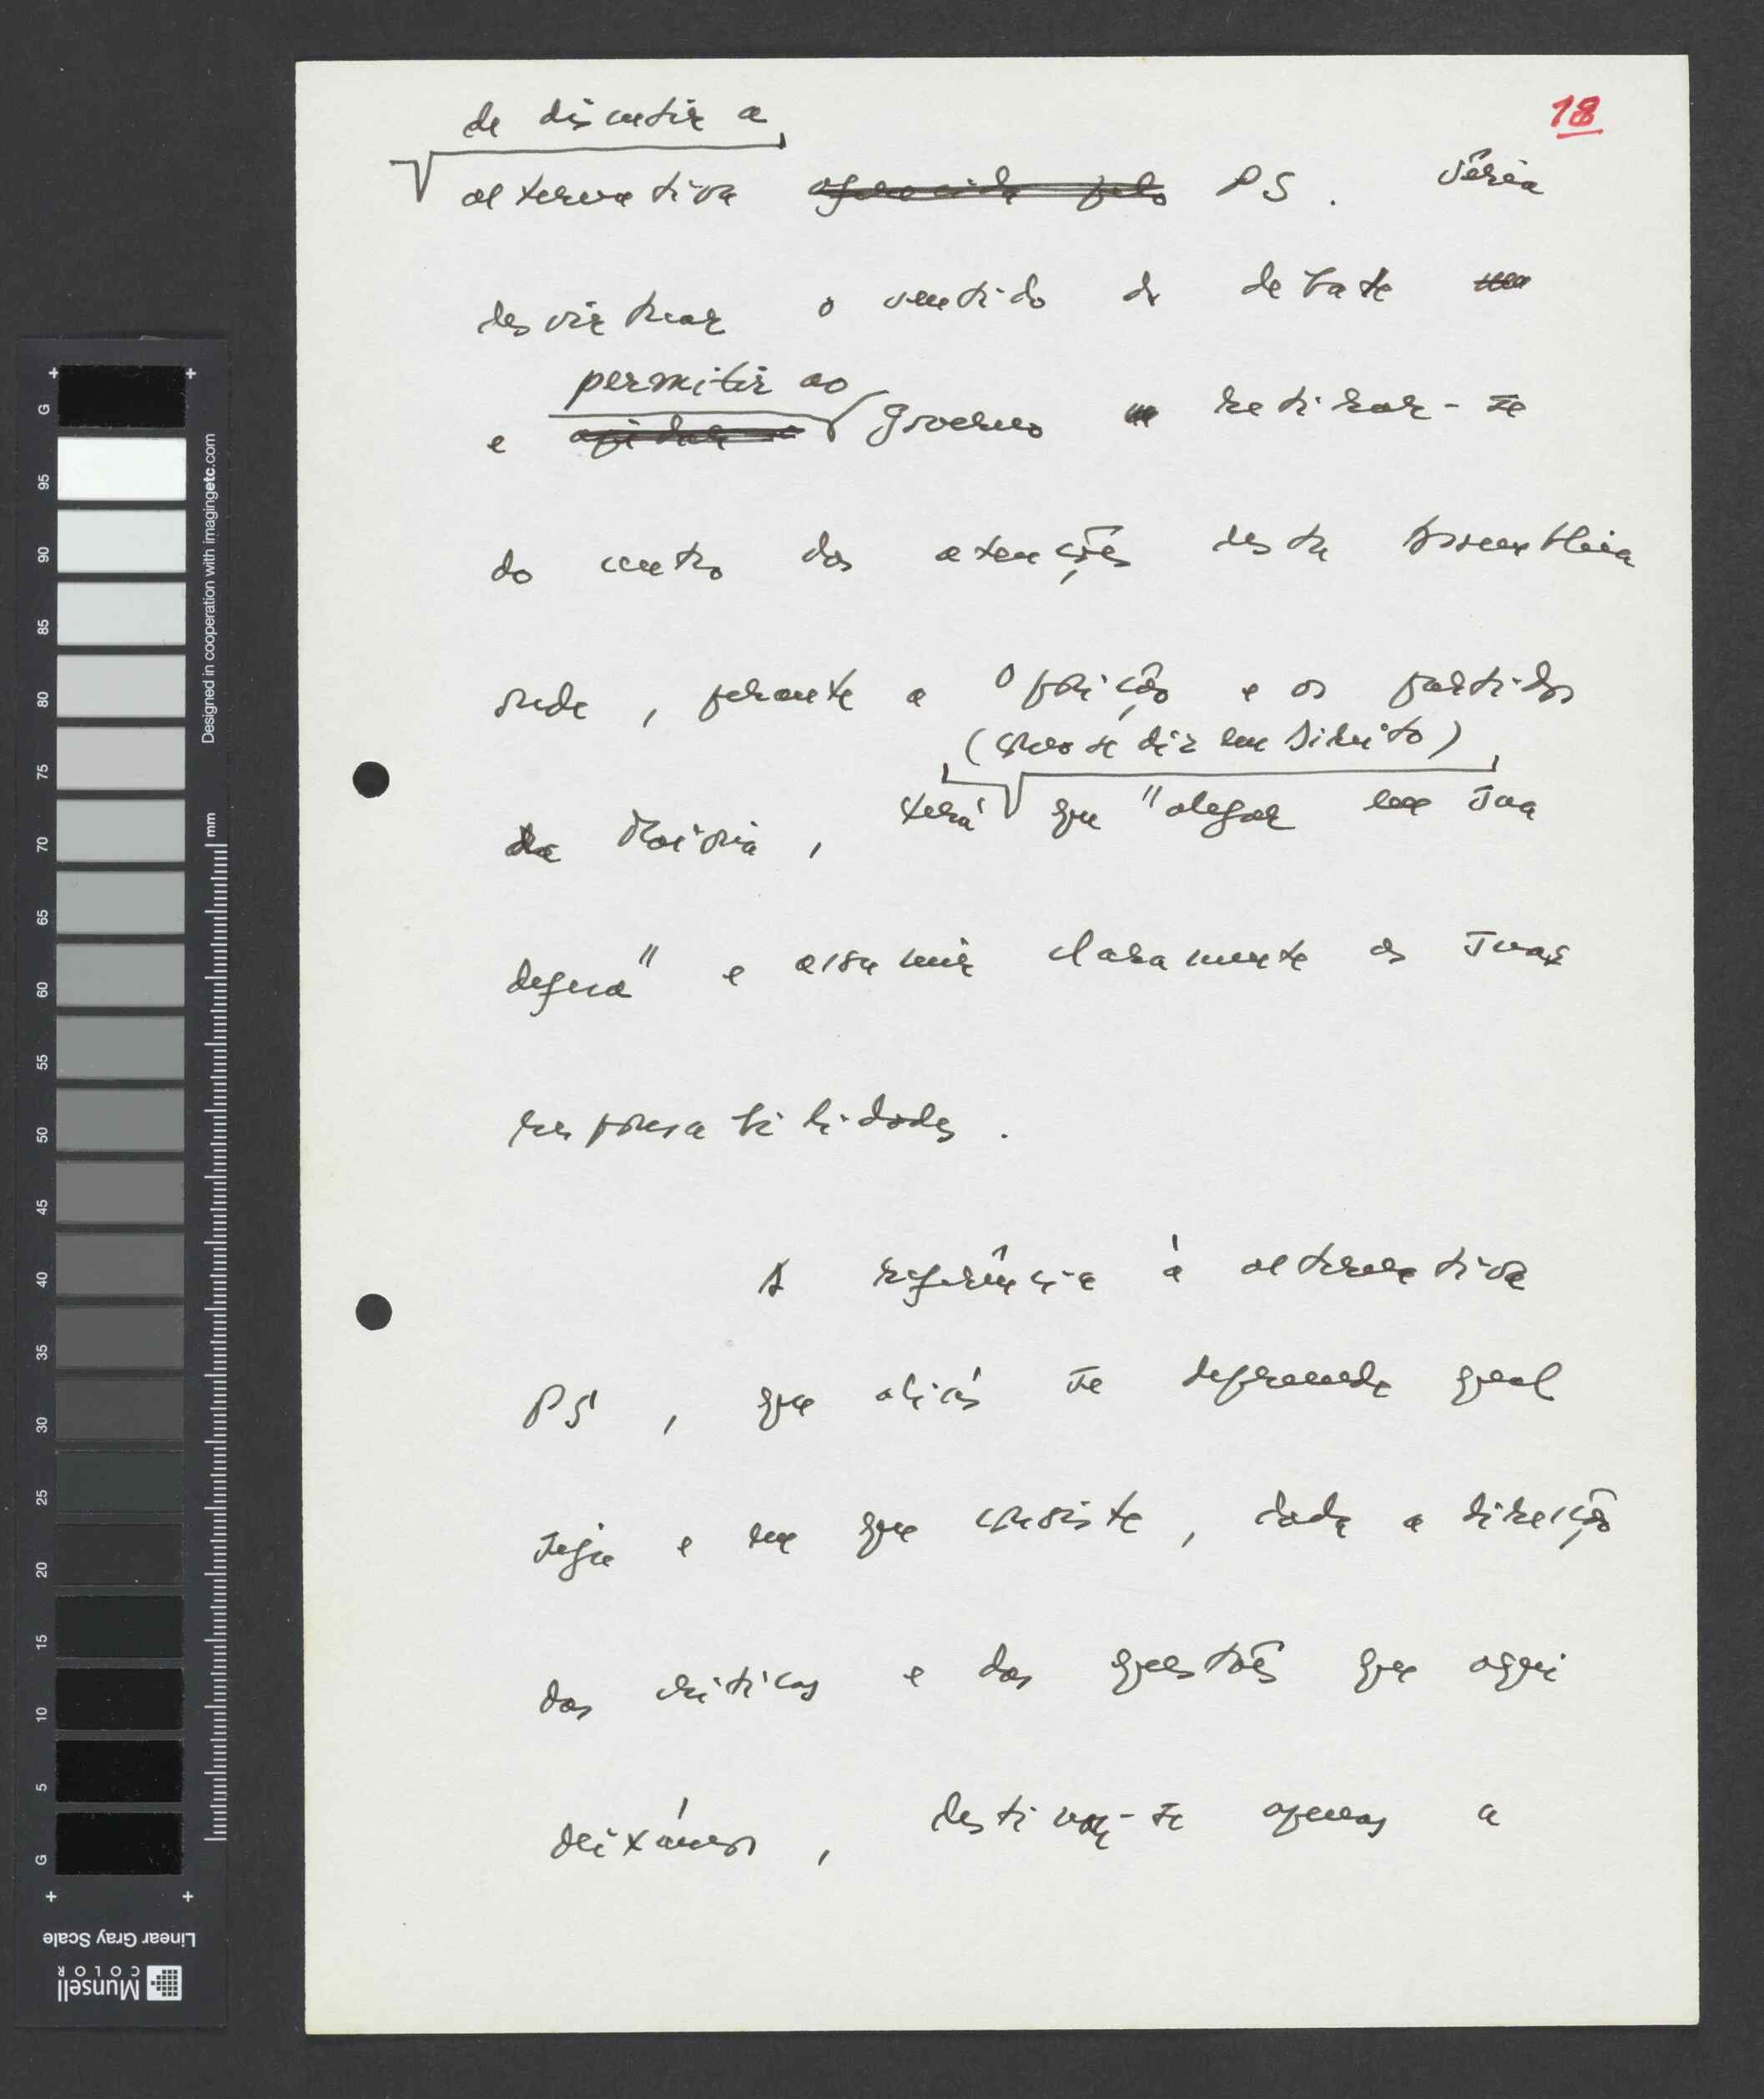 18
de discutir a
alternativa oferecida pelo PS. Seria
desvirtuar o sentido do debate
permitir ao
e ajudar o Governo a retirar-se
do centro das atenções desta Assembleia
onde, perante a Oposição e os partidos
(como se diz em Direito)
da Maioria, terá que "alegar em sua
defesa" e assumir claramente as suas
responsabilidades.
A referência à alternativa
PS, que aliás se depreende qual
seja e em que consiste, dada a direcção
das críticas e das questões que aqui
deixámos, destina-se apenas a
G
95
90
85
80
75
70
65
60
55
50
45
40
35
30
25
20
15
10
5
G
Designed in cooperation with imagingetc.com
mm
Linear Gray Scale
Munsell
COLOR